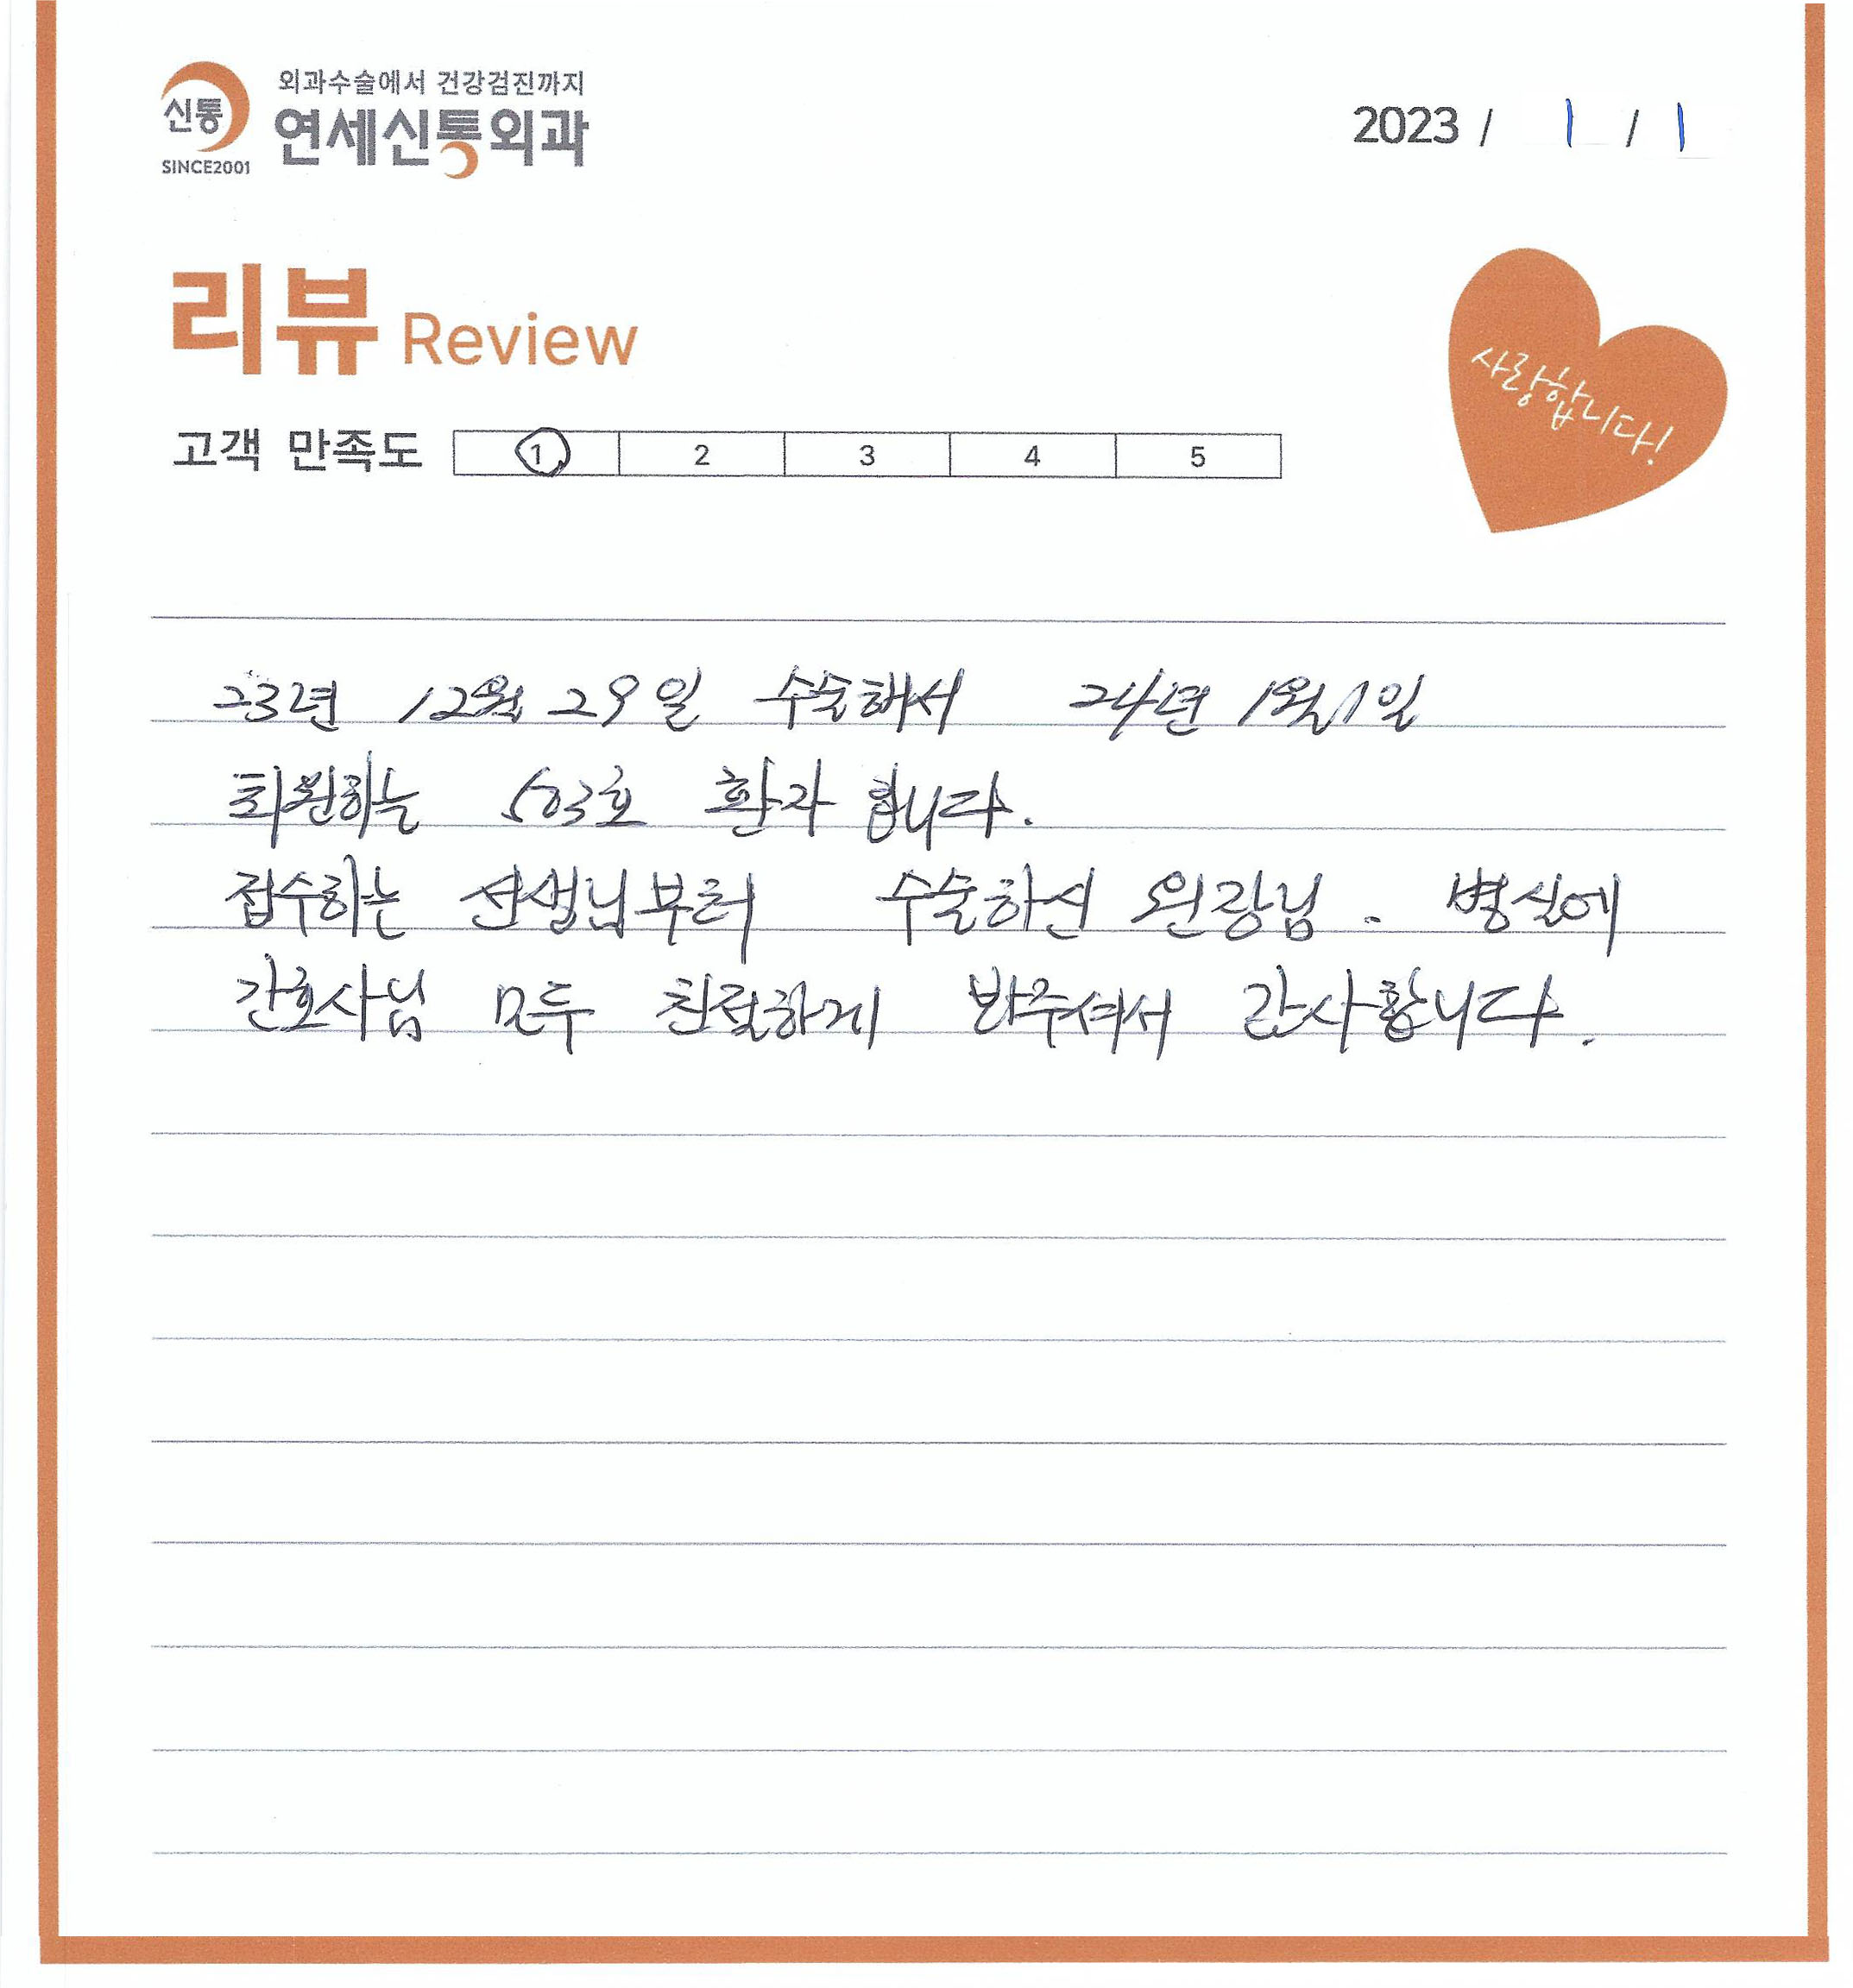 외과수술에서 건강검진까지
신통
연세신통외과
SINCE2001
2023 / 1 / 1
리뷰 Review
사랑합니다!
고객 만족도 1 2 3 4 5
23년 12월 29일 수술해서 24년 1월 1일
퇴원하는 503호 환자 입니다.
접수하는 선생님부터 수술하신 원장님. 병실에
간호사님 모두 친절하게 봐주셔서 감사합니다.